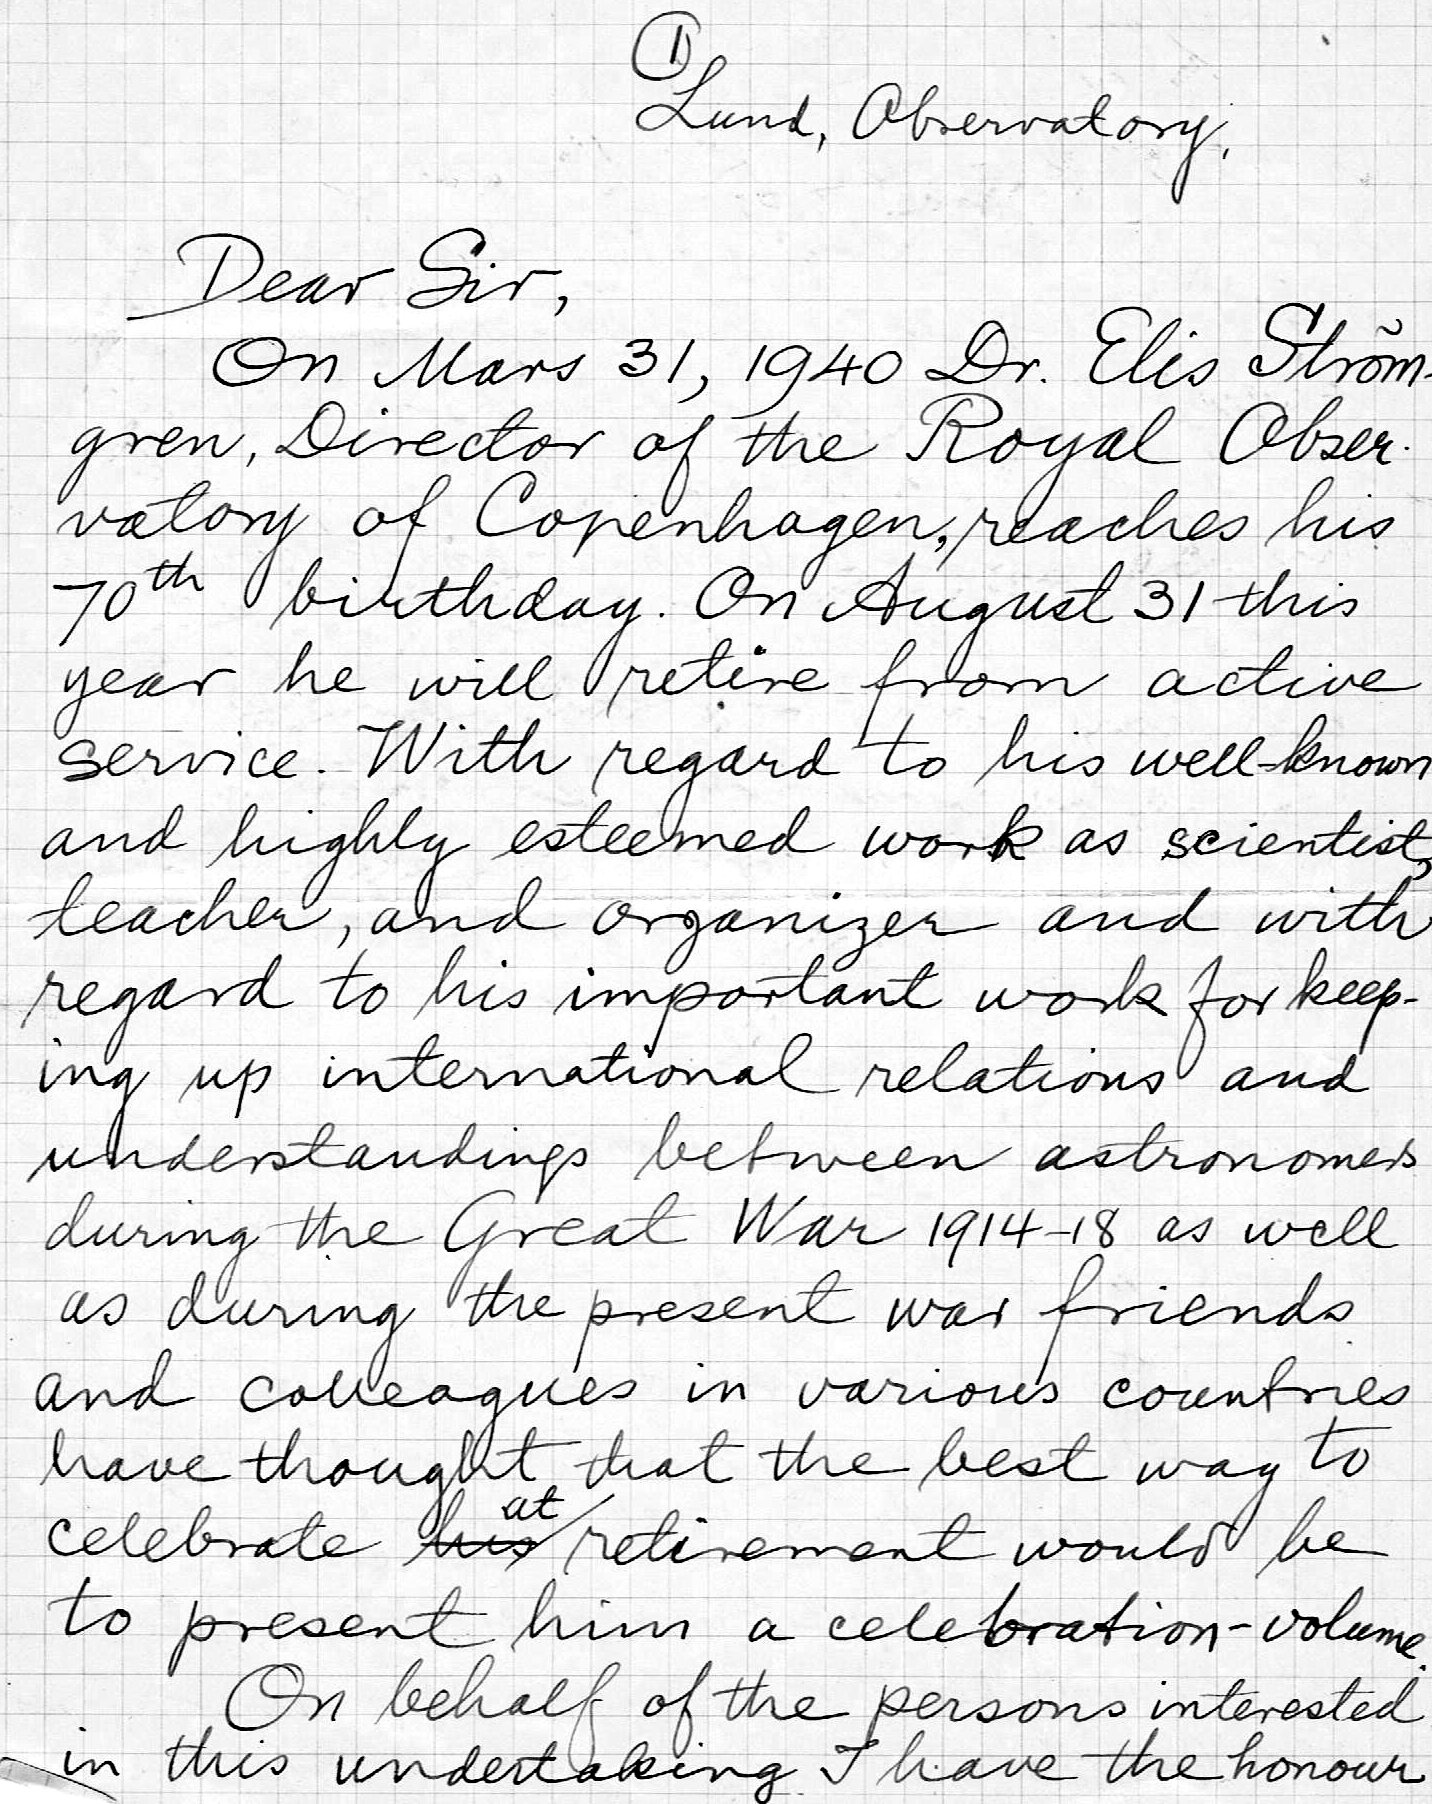 1
Lund, Observatory,
Dear Sir,
On Mars 31, 1940 Dr. Elis Ström-
gren, Director of the Royal Obser-
vatory of Copenhagen, reaches his
70th birthday. On August 31 this
year he will retire from active
service. With regard to his well-known
and highly esteemed work as scientist,
teacher, and organizer and with
regard to his important work for keep-
ing up international relations and
understandings between astronomers
during the Great War 1914-18 as well
as during the present war friends
and colleagues in various countries
have thought that the best way to
at
celebrate his retirement would be
to present him a celebration-volume.
On behalf of the persons interested
in this undertaking I have the honour